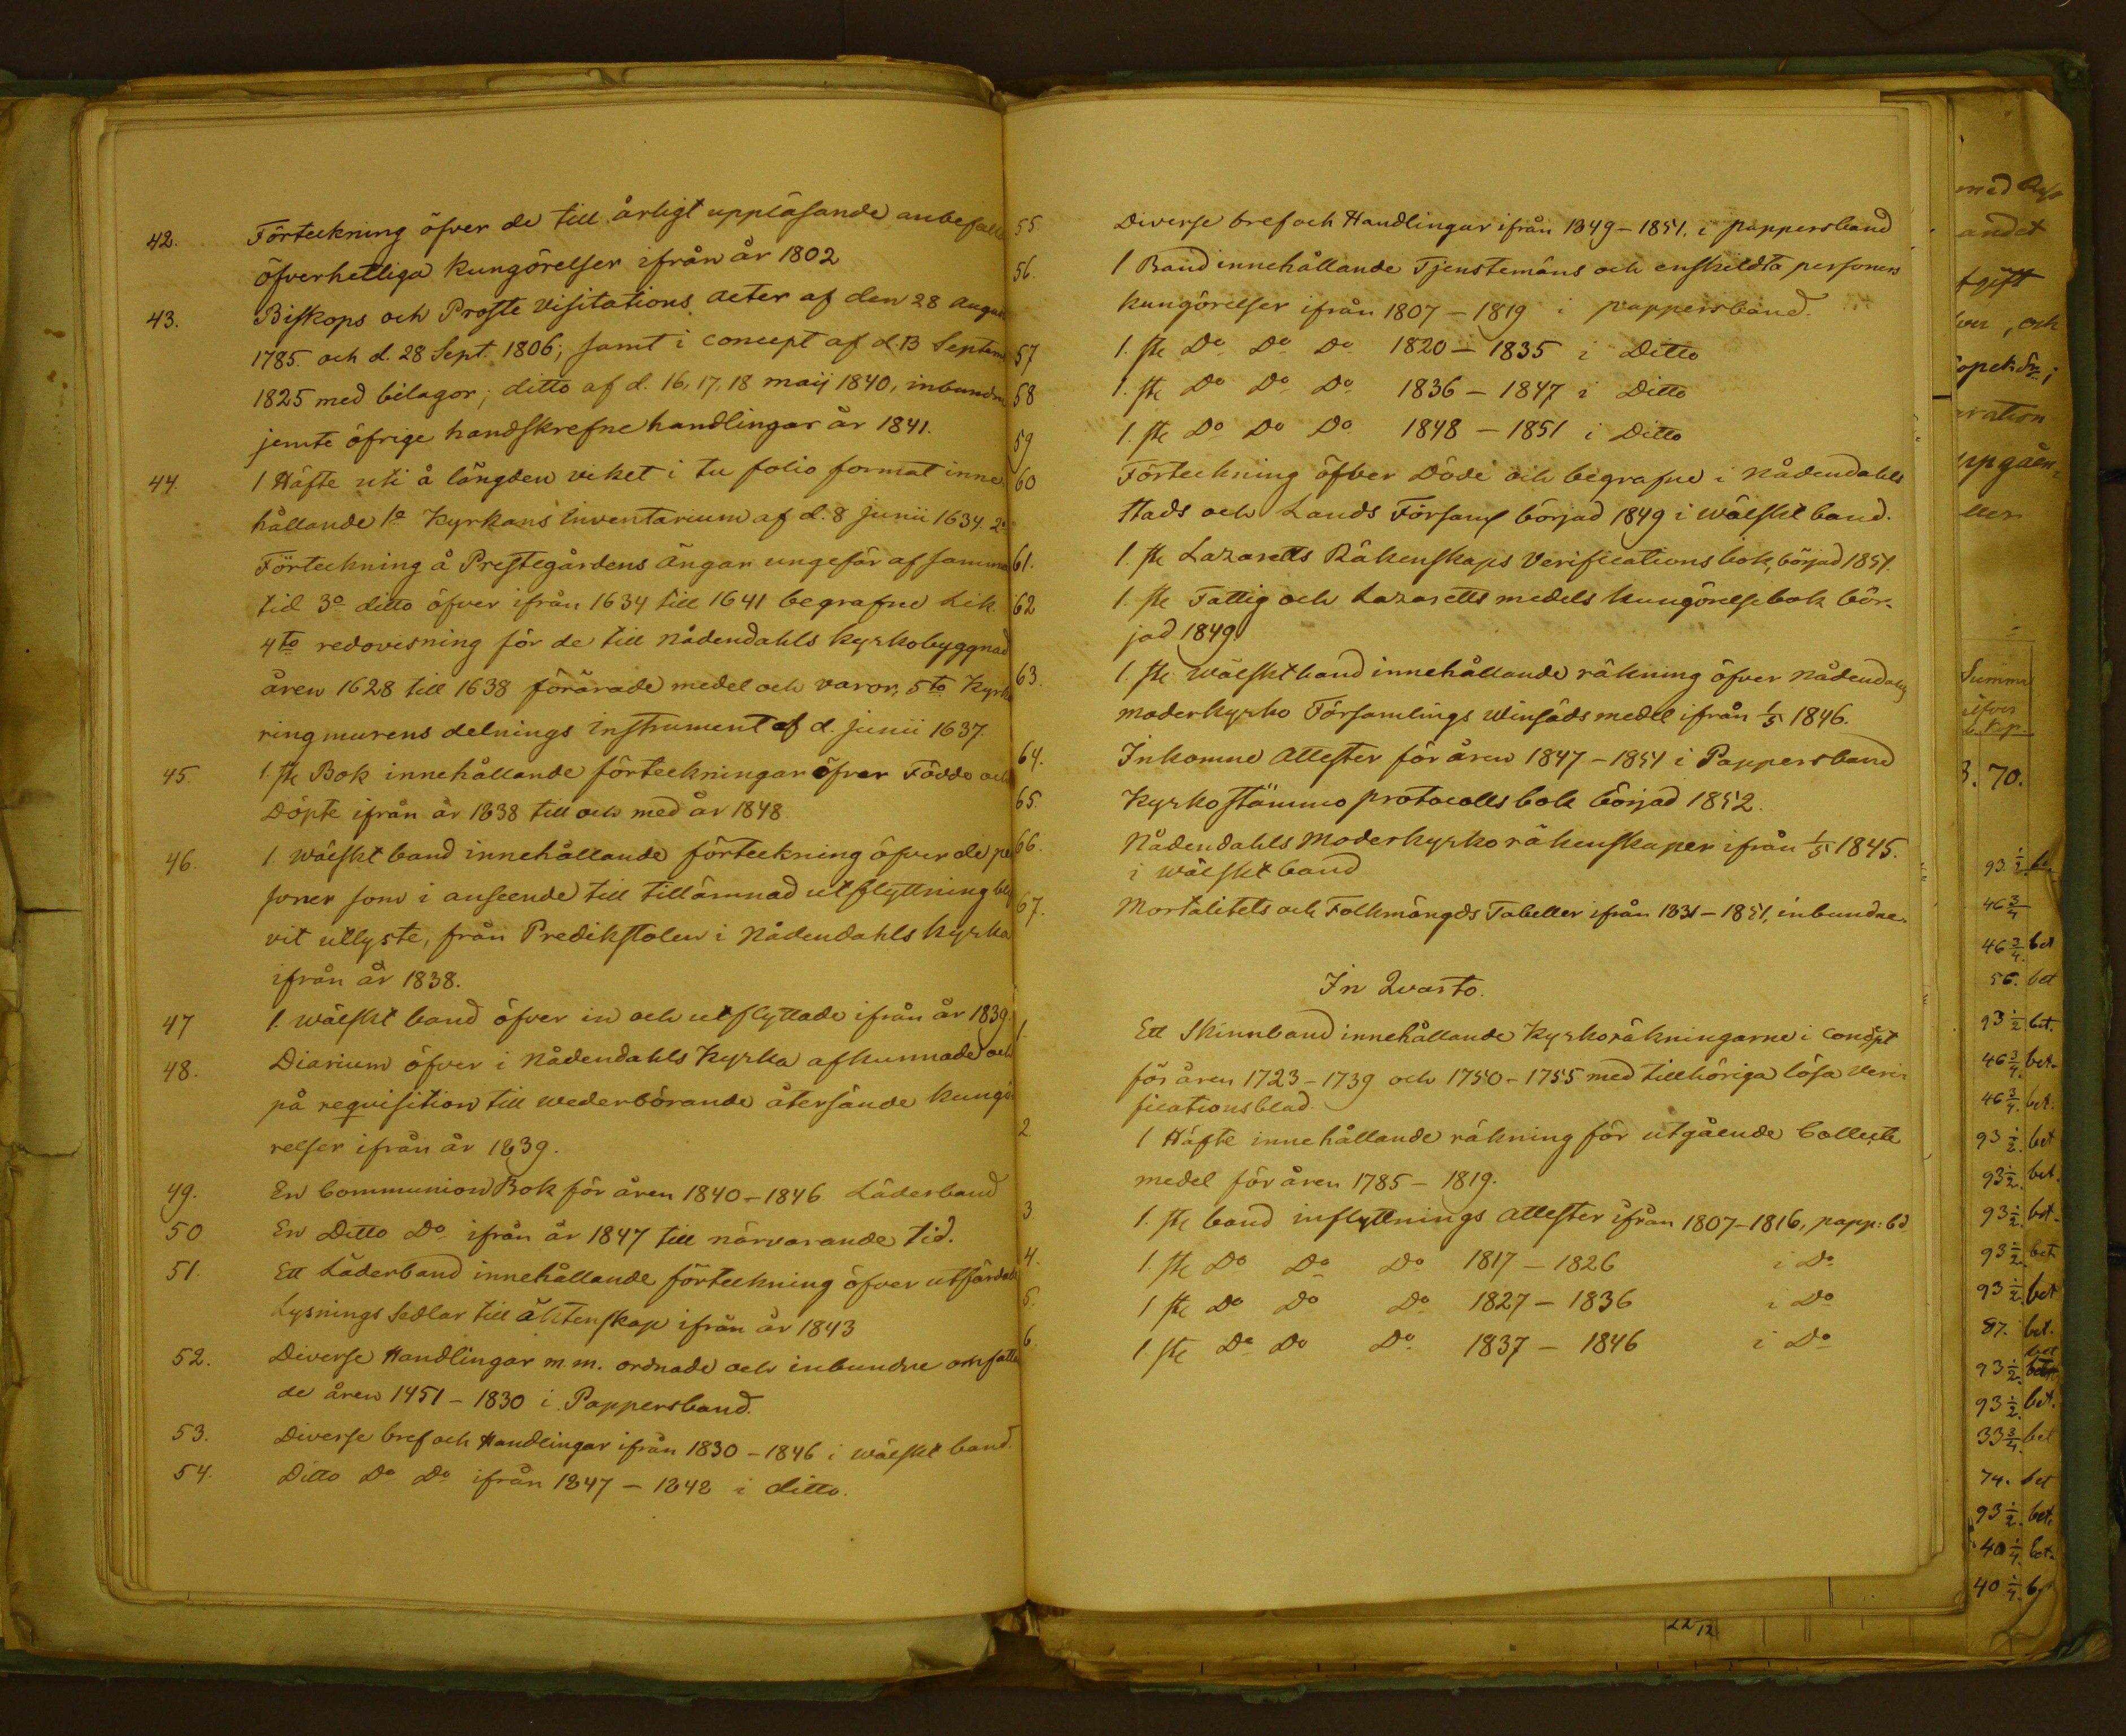 42. Förteckning öfver de till årligt uppläsande anbefalld
öfverhetliga Kungörelser ifrån år 1802
43. Biskops och Proste Visitations acter af den 28 Augus
1785. och d. 28 Sept. 1806; samt i concept af d. 13 Septem
1825 med bilagor; ditto af d. 16, 17, 18 maij 1840, inbundn
jemte öfrige handskrefne handlingar år 1841.
44. 1 Häfte uti å längden viket i tu folio format inne-
hållande 1o Kyrkans Inventarium af d. 8 Junii 1634. 2o
Förteckning å Prestegårdens Ängar ungefär af samma
tid 3o ditto öfver ifrån 1634 till 1641 begrafne Lik.
4to redovisning för de till Nådendahls Kyrkobyggnad
åren 1628 till 1638 förärade medel och varor, 5to Kyrko
ringmurens delnings instrument af d. Junii 1637.
45. 1. st. Bok innehållande förteckningar öfver Födde och
Döpte ifrån år 1838 till och med år 1848
46. 1. wälskt band innehållande förteckning öfver de per
soner som i anseende till tillämnad utflyttning blif
vit utlyste, från Predikstolen i Nådendahls Kyrka
ifrån år 1838.
47 1. wälskt band öfver in och utflyttade ifrån år 1839.
48. Diarium öfver i Nådendahls Kyrka afkunnade och
på requisition till wederbörande återsände Kungö-
relser ifrån år 1839.
49. En Communion Bok för åren 1840-1846 Läderband
50 En Ditto Do ifrån år 1847 till närvarande tid.
51. Ett Läderband innehållande förteckning öfver utfärdade
Lysnings Sedlar till Äktenskap ifrån år 1843
52. Diverse Handlingar m.m. ordnade och inbundne omfatta
de åren 1451 - 1830 i Pappersband.
53. Diverse bref och Handlingar ifrån 1830 - 1846 i wälskt band.
54. Ditto Do Do ifrån 1847 - 1848 i ditto.
55 Diverse bref och Handlingar ifrån 1849 - 1851. i pappersband
56. 1 Band innehållande Tjenstemäns och enskildta personers
Kungörelser ifrån 1807 - 1819 i pappersband.
57 1. st. Do Do Do 1820 - 1835 i Ditto
58 1. st. Do Do Do 1836 - 1847 i Ditto
59 1. st. Do Do Do 1848 - 1851 i Ditto
60 Förteckning öfver Döde och begrafne i Nådendahls
Stads och Lands Församl börjad 1849 i wälskt band.
61. 1. st. Lazaretts Räkenskaps Verifications bok, börjad 1851.
62 1. st. Fattig och Lazaretts medels Kungörelsebok bör-
jad 1849.
63. 1. st. Wälskt band innehållande räkning öfver Nådendahls
moderkyrko Församlings Winsäds medel ifrån 1/5 1846.
64. Inkomne Attester för åren 1847 - 1851 i Pappersband
65. Kyrkostämmo protocolls bok börjad 1852.
66. Nådendahls Moderkyrko räkenskaper ifrån 1/5 1845.
i wälskt band
67. Mortalitets och Folkmängds Tabeller ifrån 1831 - 1851, inbundne.
In Qvarto.
1. Ett Skinnband innehållande Kyrkoräkningarne i concept
för åren 1723 - 1739 och 1750 - 1755 med tillhöriga lösa veri-
ficationsblad.
2. 1 Häfte innehållande räkning för utgående Collecte
medel för åren 1785 - 1819.
3. 1. st. band inflyttnings Attester ifrån 1807-1816, papp: bd
4. 1. st. Do Do Do 1817 - 1826 i Do
5. 1 st. Do Do Do 1827 - 1836 i Do
6. 1. st. Do Do Do 1837 - 1846 i Do
med
andet
och
uppgåen-
Summa
öfver
kop.
3. 70.
93 1/2
46 3/4
46 3/4. bet
56. bet
93 1/2 bet.
46 3/4. bet.
46 3/4. bet.
93 1/2. bet
93 1/2. bet.
93 1/2. bet.
93 1/2. bet
93 1/2. bet
87. bet.
93 1/2. bet
93 1/2. bet.
33 3/4. bet
74. bet
93 1/2. bet.
40 1/4. bet.
40 1/4.